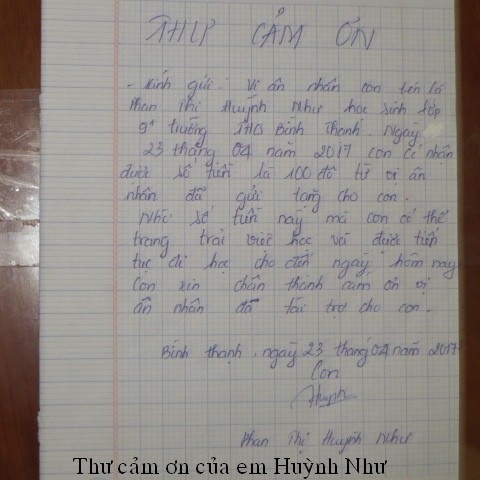 THƯ CẢM ƠN
- Kính gửi: Vị ân nhân con tên là
Phan Thị Huỳnh Như học sinh lớp
9⁴ trường THCS Bình Thạnh. Ngày
23 tháng 04 năm 2017 con có nhận
được số tiền là 100 đô từ vị ân
nhân đã gửi tặng cho con.
Nhờ số tiền này mà con có thể
trang trải việc học và được tiếp
tục đi học cho đến ngày hôm nay
Con xin chân thành cám ơn vị
ân nhân đã tài trợ cho con.
Bình thạnh, ngày 23 tháng 04 năm 2017
Con
Huỳnh
Phan Thị Huỳnh Như
Thư cảm ơn của em Huỳnh Như